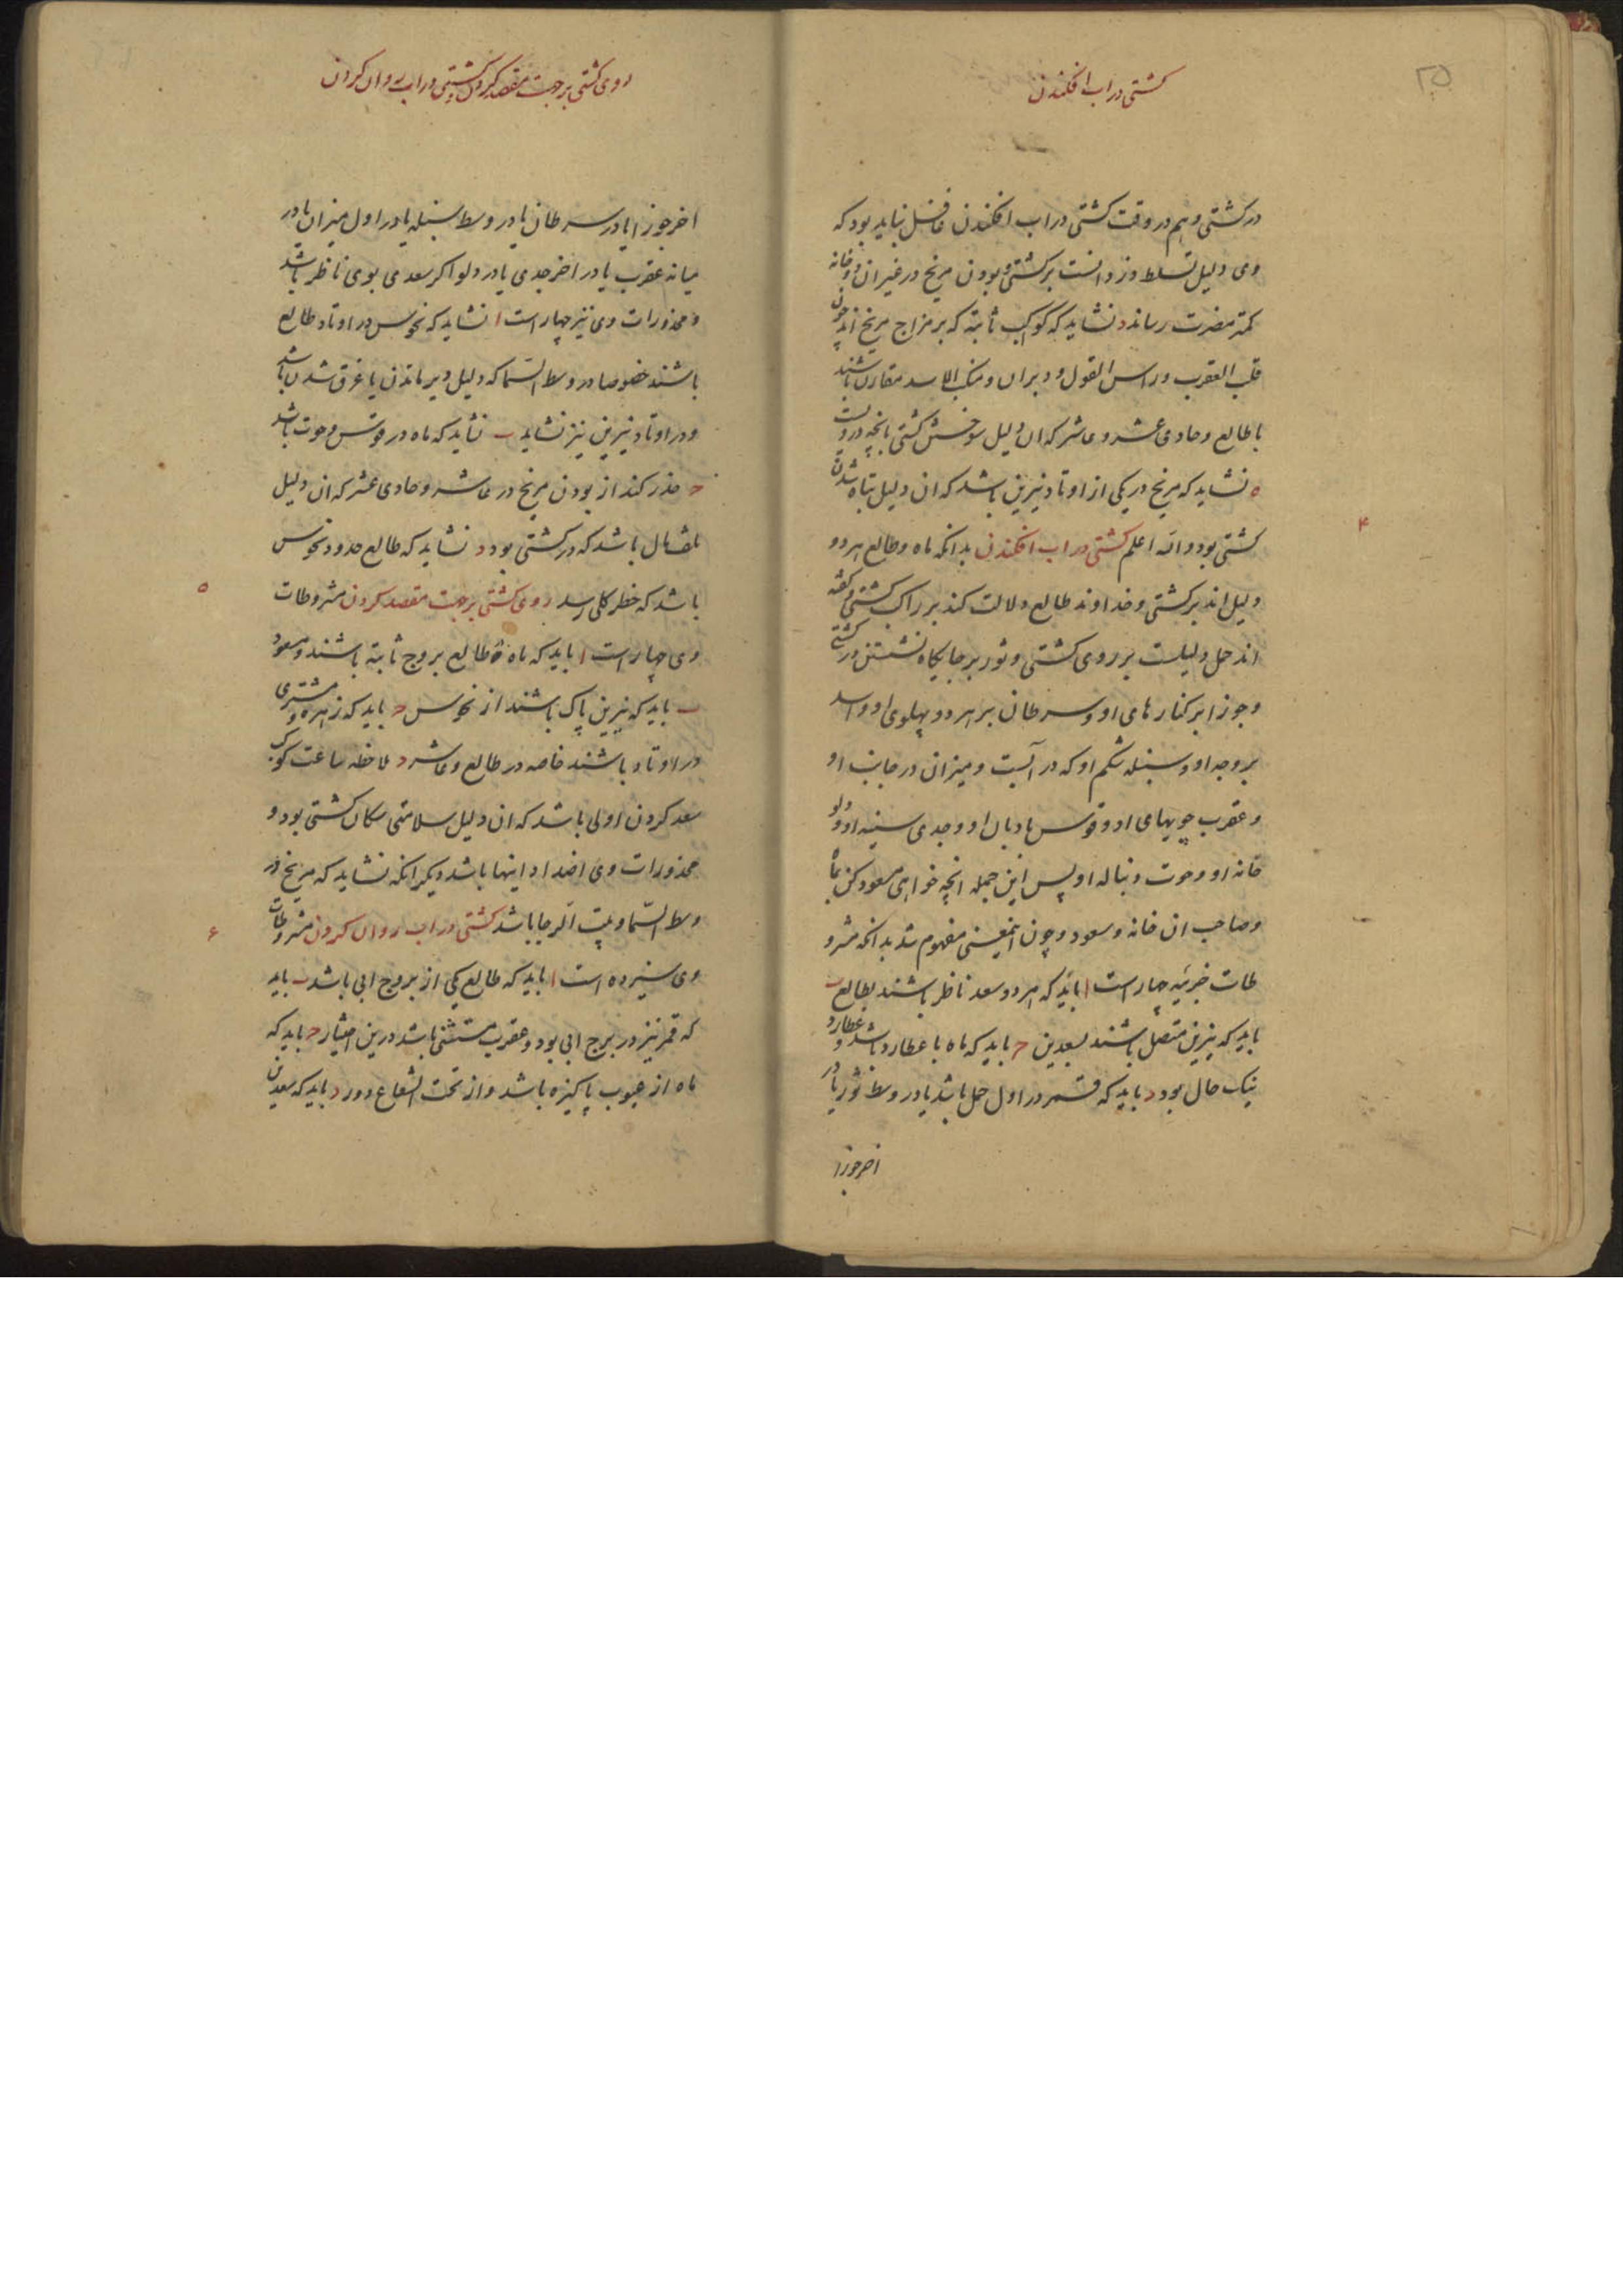 ۲۵
کشتی در اب افکندن
در کشتی و هم در وقت کشتی در اب افکندن غافل نباید بود که
وی دلیل تسلط دزدانست بر کشتی و بودن مریخ در غیر ان دو خانه
کمتر مضرت رساند د نشاید که کواکب ثابته که بر مزاج مریخ اند چون
قلب العقرب و راس الغول و دبران و منکب الاسد مقارن باشند
با طالع و حادی عشر و عاشر که ان دلیل سوختن کشتی بانچه دروست
ه نشاید که مریخ در یکی از اوتاد نیرین باشد که ان دلیل تباه شدن
کشتی بود والله اعلم کشتی در اب افکندن بدانکه ماه و طالع هر دو
۴
دلیل اند بر کشتی و خداوند طالع دلالت کند بر راکب کشتی و گفته
اند حمل دلیلست بر روی کشتی و ثور بر جایگاه نشستن در کشتی
و جوزا بر کنارهای او و سرطان بر هر دو پهلوی او و اسد
بر وجه او و سنبله شکم او که در آبست و میزان در جانب او
و عقرب چوبهای او و قوس بادبان او و جدی سینه او و دلو
خانه او و حوت دنباله او پس ازین جمله انچه خواهی مسعود کن بماه
و صاحب ان خانه و سعود و چون اینمعنی مفهوم شد بدانکه مشرو
طات جزئیه چهار است ا باید که هر دو سعد ناظر باشند بطالع ب
باید که نیرین متصل باشند بسعدین ج باید که ماه با عطارد باشد و عطارد
نیک حال بود د باید که قمر در اول حمل باشد یا در وسط ثور یا در
اخر جوزا
روی کشتی بر جهت مقصد کردن کشتی در اب روان کردن
اخر جوزا یا در سرطان یا در وسط سنبله یا در اول میزان یا در
میانه عقرب یا در اخر جدی یا در دلو اکر سعدی بوی ناظر باشد
و محذورات وی نیز چهار است ا نشاید که نحوس در اوتاد طالع
باشند خصوصا در وسط السما که دلیل دیر ماندن یا غرق شدن باشد
و در اوتاد نیرین نیز نشاید ب نشاید که ماه در قوس و حوت باشد
ج حذر کند از بودن مریخ در عاشر و حادی عشر که ان دلیل
تلف مال باشد که در کشتی بود د نشاید که طالع حدود نحوس
باشد که خطر کلی رسد روی کشتی بر جهت مقصد کردن مشروطات
۵
وی چهار است ا باید که ماه و طالع بروج ثابته باشند و مسعود
ب باید که نیرین پاک باشند از نحوس ج باید که زهره و مشتری
در اوتاد باشند خاصه در طالع و عاشر د ملاحظه ساعت کوکب
سعد کردن اولی باشد که ان دلیل سلامتی سکان کشتی بود و
محذورات وی اضداد اینها باشد دیکر انکه نشاید که مریخ در
وسط السما و بیت الرجا باشد کشتی در اب روان کردن مشروطات
۶
وی سیزده است ا باید که طالع یکی از بروج ابی باشد ب باید
که قمر نیز در برج ابی بود و عقرب مستثنی باشد درین اختیار ج باید که
ماه از عیوب پاکیزه باشد و از تحت الشعاع دور د باید که سعدین